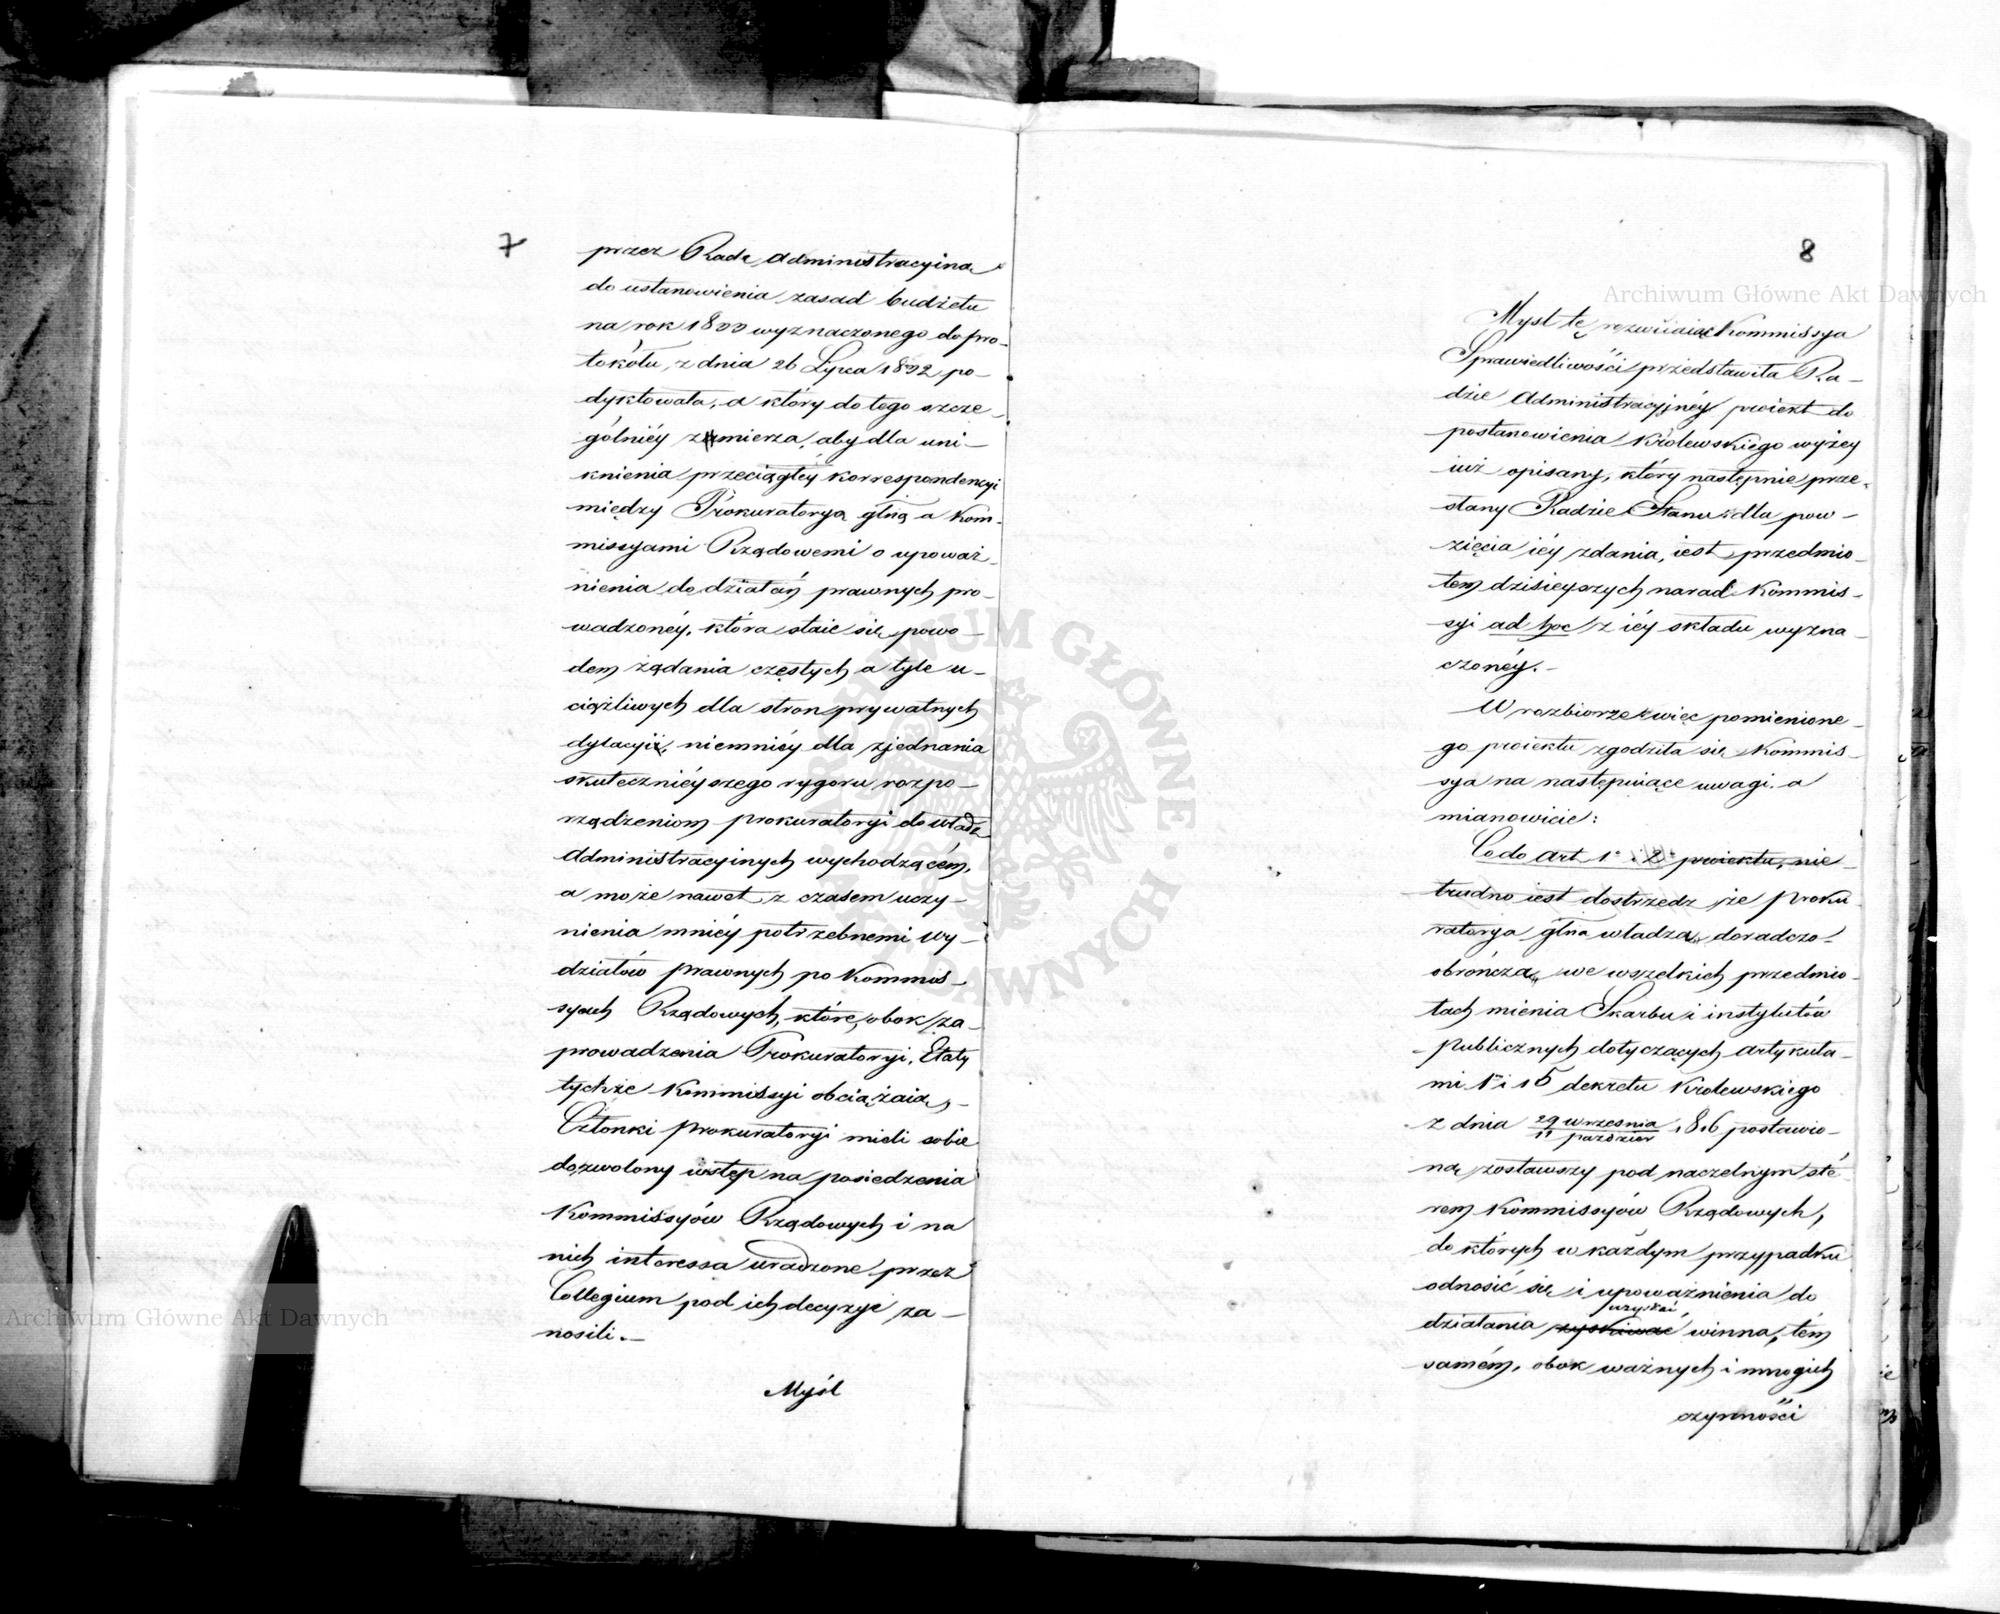 7
przez Radę Administracyina
do ustanowienia zasad budżetu
na rok 1833 wyznaczonego do pro-
tokółu, z dnia 26 Lipca 1832 po-
dyktowała, a który do tego szcze-
gólniéy zamierza, aby dla uni-
knienia przeciągłéy korrespondencyi
między Prokuratoryą głną a Kom-
missyami Rządowemi o upoważ-
nienia do działań prawnych pro-
wadzonéy, która staie się powo-
dem żądania częstych a tyle u-
ciążliwych dla stron prywatnych
dylacyi, niemniéy dla zjednania
skuteczniéyszego rygoru rozpo-
rządzeniom prokuratoryi do władz
Administracyinych wychodzącém,
a może nawet z czasem uczy-
nienia mniéy potrzebnemi Wy-
działów prawnych po Kommis-
syach Rządowych, które, obok za-
prowadzenia Prokuratoryi, Etaty
tychże Kommissyi obciążaią,-
Członki prokuratoryi mieli sobie
dozwolony wstęp na posiedzenia
Kommissyów Rządowych i na
nich interessa uradzone przez
Collegium pod ich decyzyie za-
nosili.-
Myśl
8
Myśl tę rozwiiaiąc Kommissya
Sprawiedliwości przedstawiła Ra-
dzie Administracyjnéy proiekt do
postanowienia Królewskiego wyżey
iuż opisany, który następnie prze-
słany Radzie Stanu dla pow-
zięcia iéy zdania, iest przedmio-
tem dzisieyszych narad Kommis-
syi ad hoc z iéy składu wyzna-
czonéy.-
W rozbiorze więc pomienione-
go proiektu zgodziła się Kommis-
sya na następuiące uwagi, a
mianowicie:
Co do Art 1° i 2° proiektu, nie
trudno iest dostrzedz że Proku
ratorya głna władzą doradczo-
obrończą we wszelkich przedmio-
tach mienia Skarbu i instytutów
Publicznych dotyczących artykuła-
mi 1 i 15 dekretu Królewskiego
z dnia 29 września
11 paździer 1816 postawio-
ną zostawszy pod naczelnym sté-
rem Kommissyów Rządowych,
do których w każdym przypadku
odnosić się i upoważnienia do
uzyskać
działania zyskiwać winna, tém
samém, obok ważnych i mnogich
czynności
Archiwum Główne Akt Dawnych
Archiwum Główne Akt Dawnych
ARCHIWUM GŁÓWNE AKT DAWNYCH